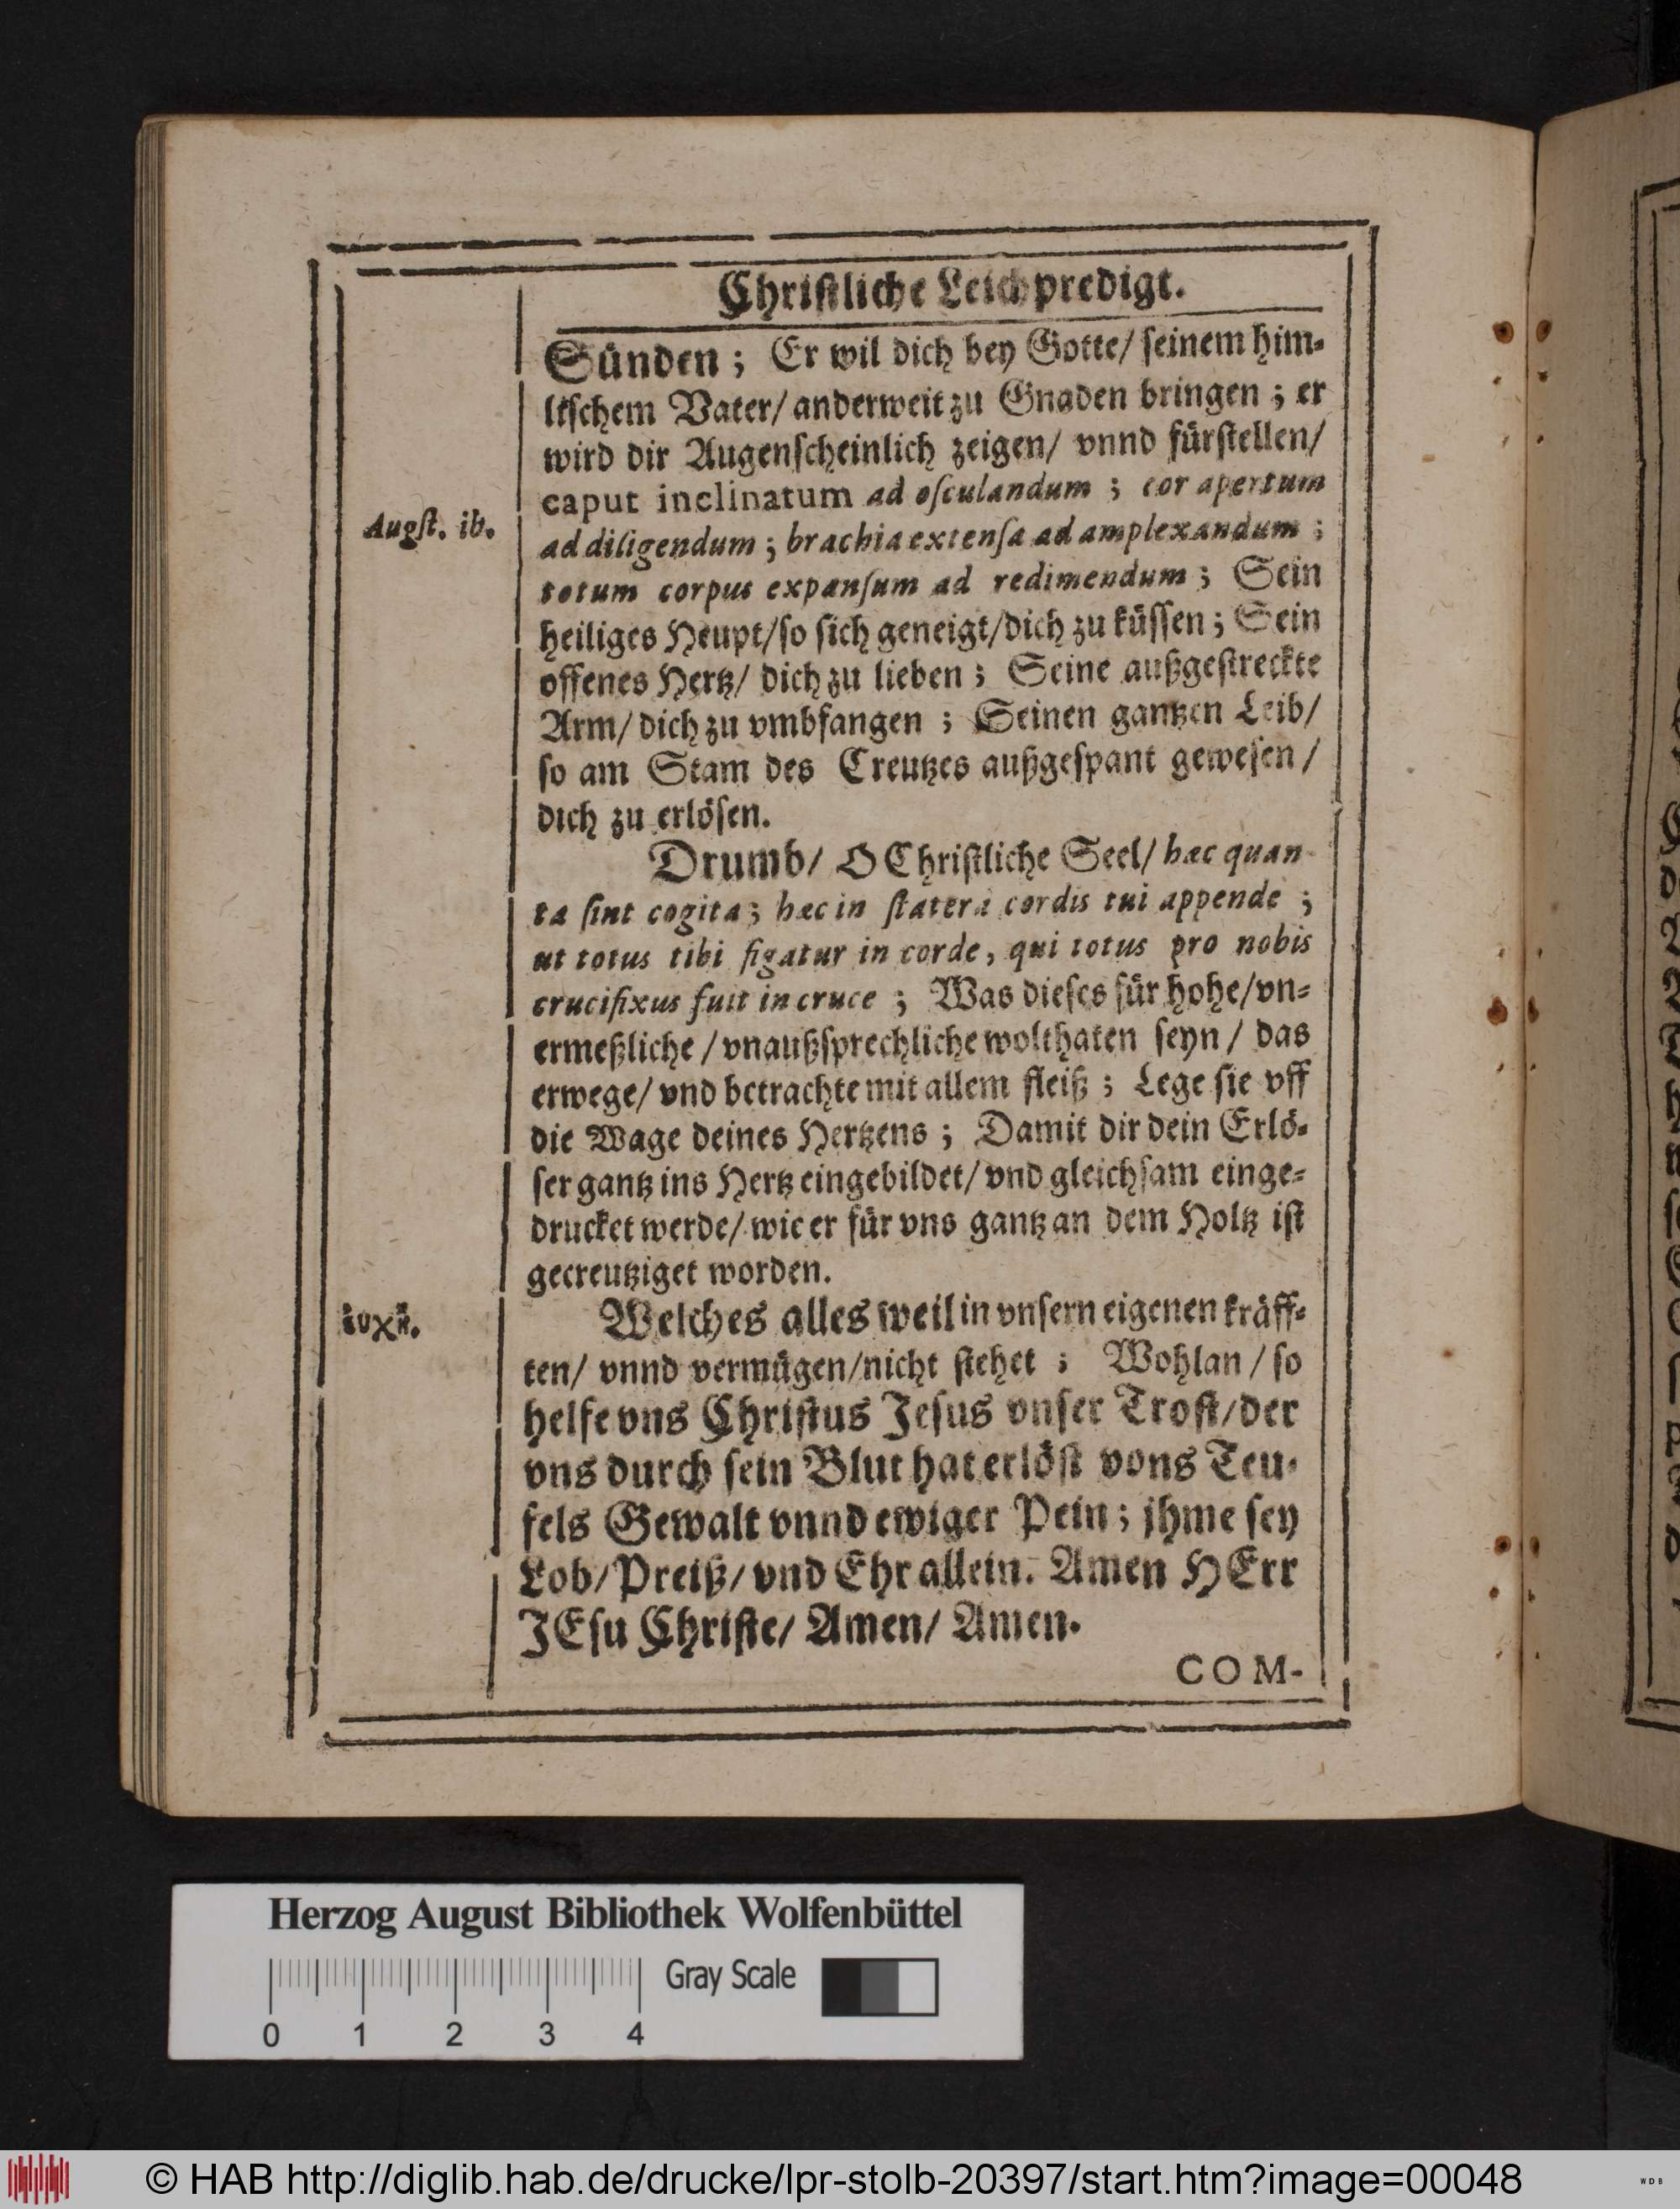 Christliche Leichpredigt.
Sünden; Er wil dich bey Gotte/ seinem him-
lischem Vater/ anderweit zu Gnaden bringen; er
wird dir Augenscheinlich zeigen/ vnnd fürstellen/
caput inclinatum ad osculandum; cor apertum
Augst. ib.
ad diligendum; brachia extensa ad amplexandum;
totum corpus expansum ad redimendum; Sein
heiliges Heupt/ so sich geneigt/ dich zu küssen; Sein
offenes Hertz/ dich zu lieben; Seine außgestreckte
Arm/ dich zu vmbfangen; Seinen gantzen Leib/
so am Stam des Creutzes außgespant gewesen/
dich zu erlösen.
Drumb/ O Christliche Seel/ hæc quan-
ta sint cogita; hæc in statera cordis tui appende;
ut totus tibi figatur in corde, qui totus pro nobis
crucifixus fuit in cruce; Was dieses für hohe/ vn-
ermeßliche/ vnaußsprechliche wolthaten seyn/ das
erwege/ vnd betrachte mit allem fleiß; Lege sie vff
die Wage deines Hertzens; Damit dir dein Erlö-
ser gantz ins Hertz eingebildet/ vnd gleichsam einge-
drucket werde/ wie er für vns gantz an dem Holtz ist
gecreutziget worden.
Welches alles weil in vnsern eigenen kräff-
ἐυχὴ.
ten/ vnnd vermügen/ nicht stehet; Wohlan/ so
helfe vns Christus Jesus vnser Trost/ der
vns durch sein Blut hat erlöst vons Teu-
fels Gewalt vnnd ewiger Pein; jhme sey
Lob/ Preiß/ vnd Ehr allein. Amen HErr
JEsu Christe/ Amen/ Amen.
COM-
Herzog August Bibliothek Wolfenbüttel
Gray Scale
0 1 2 3 4
© HAB http://diglib.hab.de/drucke/lpr-stolb-20397/start.htm?image=00048
WDB